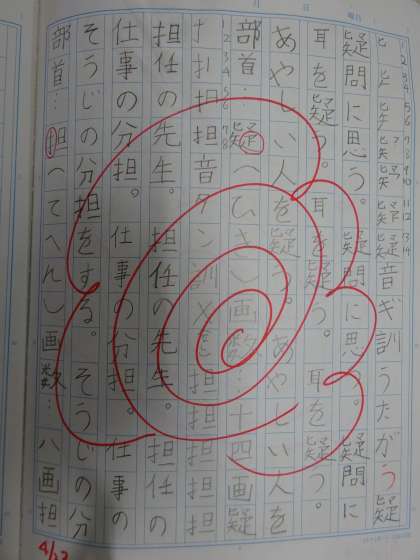 疑疑音ギ訓うたがう
疑問に思う。疑問に思う。疑問に
耳を疑う。耳を疑う。耳を疑う。
あやしい人を疑う。あやしい人を
部首…疑(ひき)画数…十四画疑
担担音タン訓×担担担担
担任の先生。担任の先生。担任の
仕事の分担。仕事の分担。仕事の
そうじの分担をする。そうじの分
部首…担(てへん)画数…八画担